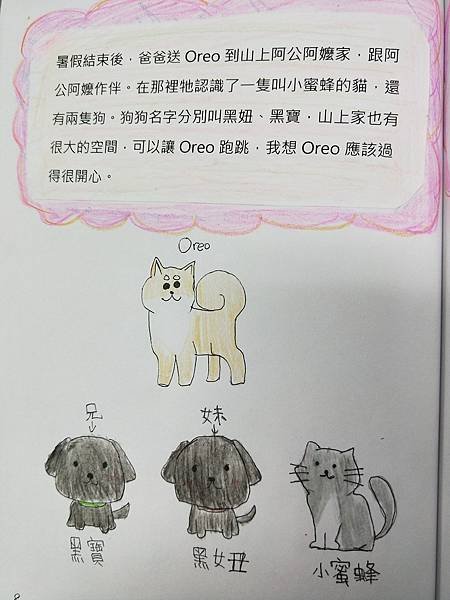 暑假結束後，爸爸送 Oreo 到山上阿公阿嬤家，跟阿
公阿嬤作伴。在那裡牠認識了一隻叫小蜜蜂的貓，還
有兩隻狗。狗狗名字分別叫黑妞、黑寶，山上家也有
很大的空間，可以讓 Oreo 跑跳，我想 Oreo 應該過
得很開心。
Oreo
兄 妹
黑寶 黑妞 小蜜蜂
8